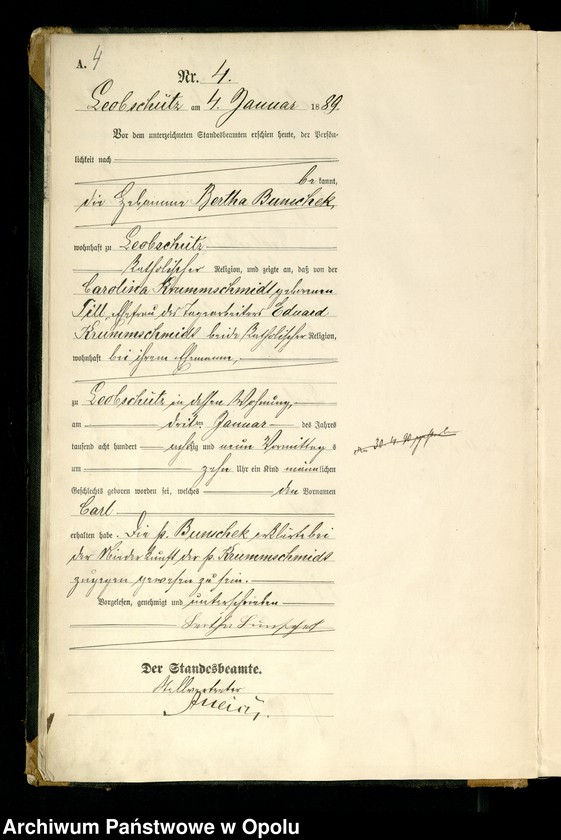 A. 4
Nr. 4.
Leobschütz am 4. Januar 1889.
Vor dem unterzeichneten Standesbeamten erschien heute, der Persön-
lichkeit nach
be kannt,
die Hebamme Bertha Bunschek,
wohnhaft zu Leobschütz
katholischer Religion, und zeigte an, daß von der
Carolina Krummschmidt geborenen
Till, Ehefrau des Tagearbeiters Eduard
Krummschmidt beide katholischer Religion,
wohnhaft bei ihrem Ehemanne,
zu Leobschütz in dessen Wohnung,
am dritten Januar des Jahres
tausend acht hundert achtzig und neun Vormittags
um zehn Uhr ein Kind männlichen
Geschlechts geboren worden sei, welches den Vornamen
Carl
erhalten habe. Die p. Bunschek erklärte bei
der Niederkunft der p. Krummschmidt
zugegen gewesen zu sein.
Vorgelesen, genehmigt und unterschrieben
Bertha Bunschek
Der Standesbeamte.
Stellvertreter
30. 4. 90
Archiwum Państwowe w Opolu